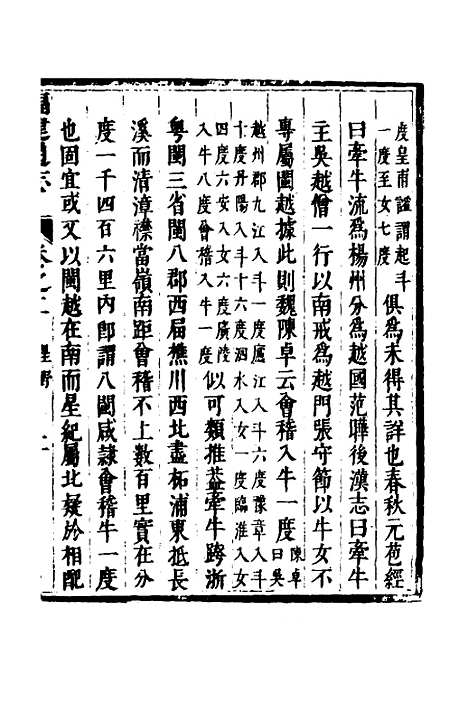 度皇甫謐謂起斗
一度至女七度
俱爲未得其詳也春秋元苞經
曰牽牛流爲楊州分爲越國范曄後漢志曰牽牛
主吳越僧一行以南戒爲越門張守節以牛女不
專屬閩越據此則魏陳卓云會稽入牛一度
陳卓
曰吳
越州郡九江入斗一度廬江入斗六度豫章入斗
十度丹陽入斗十六度泗水入女一度臨淮入女
四度六安入女六度廣陵
入牛八度會稽入牛一度
似可類推葢牽牛跨浙
粤閩三省閩八郡西屆樵川西北盡柘浦東抵長
溪而清漳襟當嶺南距會稽不上數百里實在分
度一千四百六里内卽謂八閩咸隷會稽牛一度
也固宜或又以閩越在南而星紀屬北疑於相配
福建通志
卷之二
星野